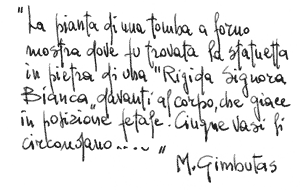 "La pianta di una tomba a forno
mostra dove fu trovata la statuetta
in pietra di una "Rigida Signora
Bianca" davanti al corpo, che giace
in posizione fetale. Cinque vasi li
circondano....."
M. Gimbutas